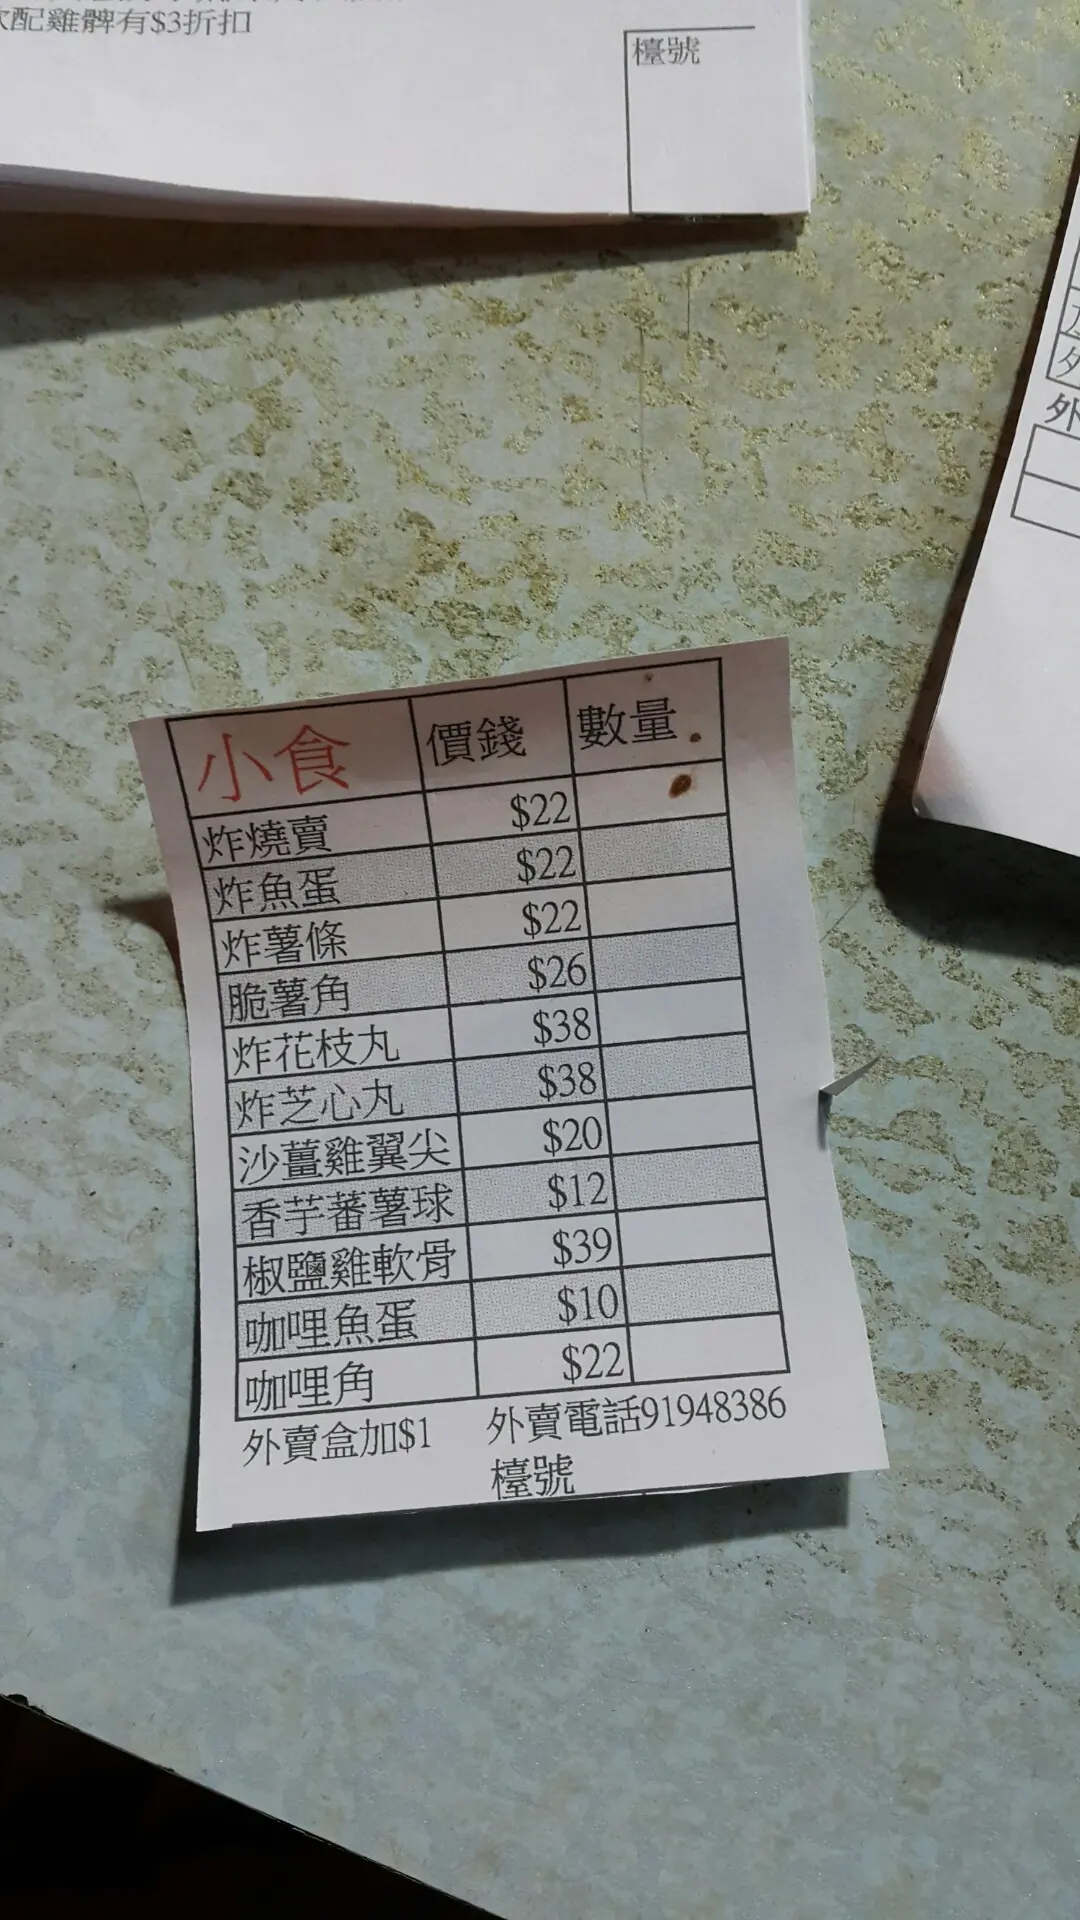 配雞髀有$3折扣
檯號
外
小食 價錢 數量
炸燒賣 $22
炸魚蛋 $22
炸薯條 $22
脆薯角 $26
炸花枝丸 $38
炸芝心丸 $38
沙薑雞翼尖 $20
香芋蕃薯球 $12
椒鹽雞軟骨 $39
咖哩魚蛋 $10
咖哩角 $22
外賣盒加$1 外賣電話91948386
檯號